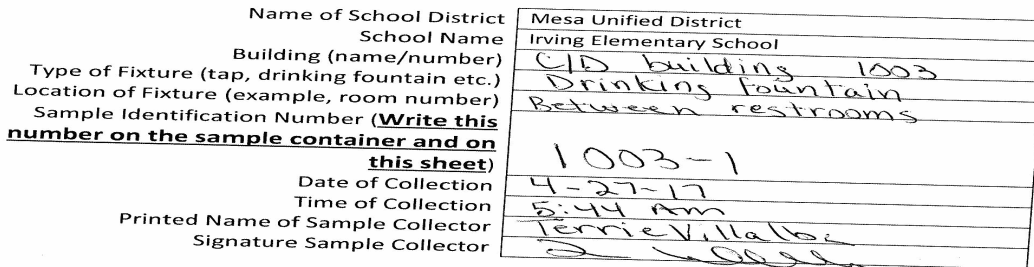 Name of School District Mesa Unified District
School Name Irving Elementary School
Building (name/number) C/D building 1003
Type of Fixture (tap, drinking fountain etc.) Drinking fountain
Location of Fixture (example, room number) Between restrooms
Sample Identification Number (Write this
number on the sample container and on
this sheet) 1003-1
Date of Collection 4-27-17
Time of Collection 5:44 Am
Printed Name of Sample Collector Terrie Villalba
Signature Sample Collector